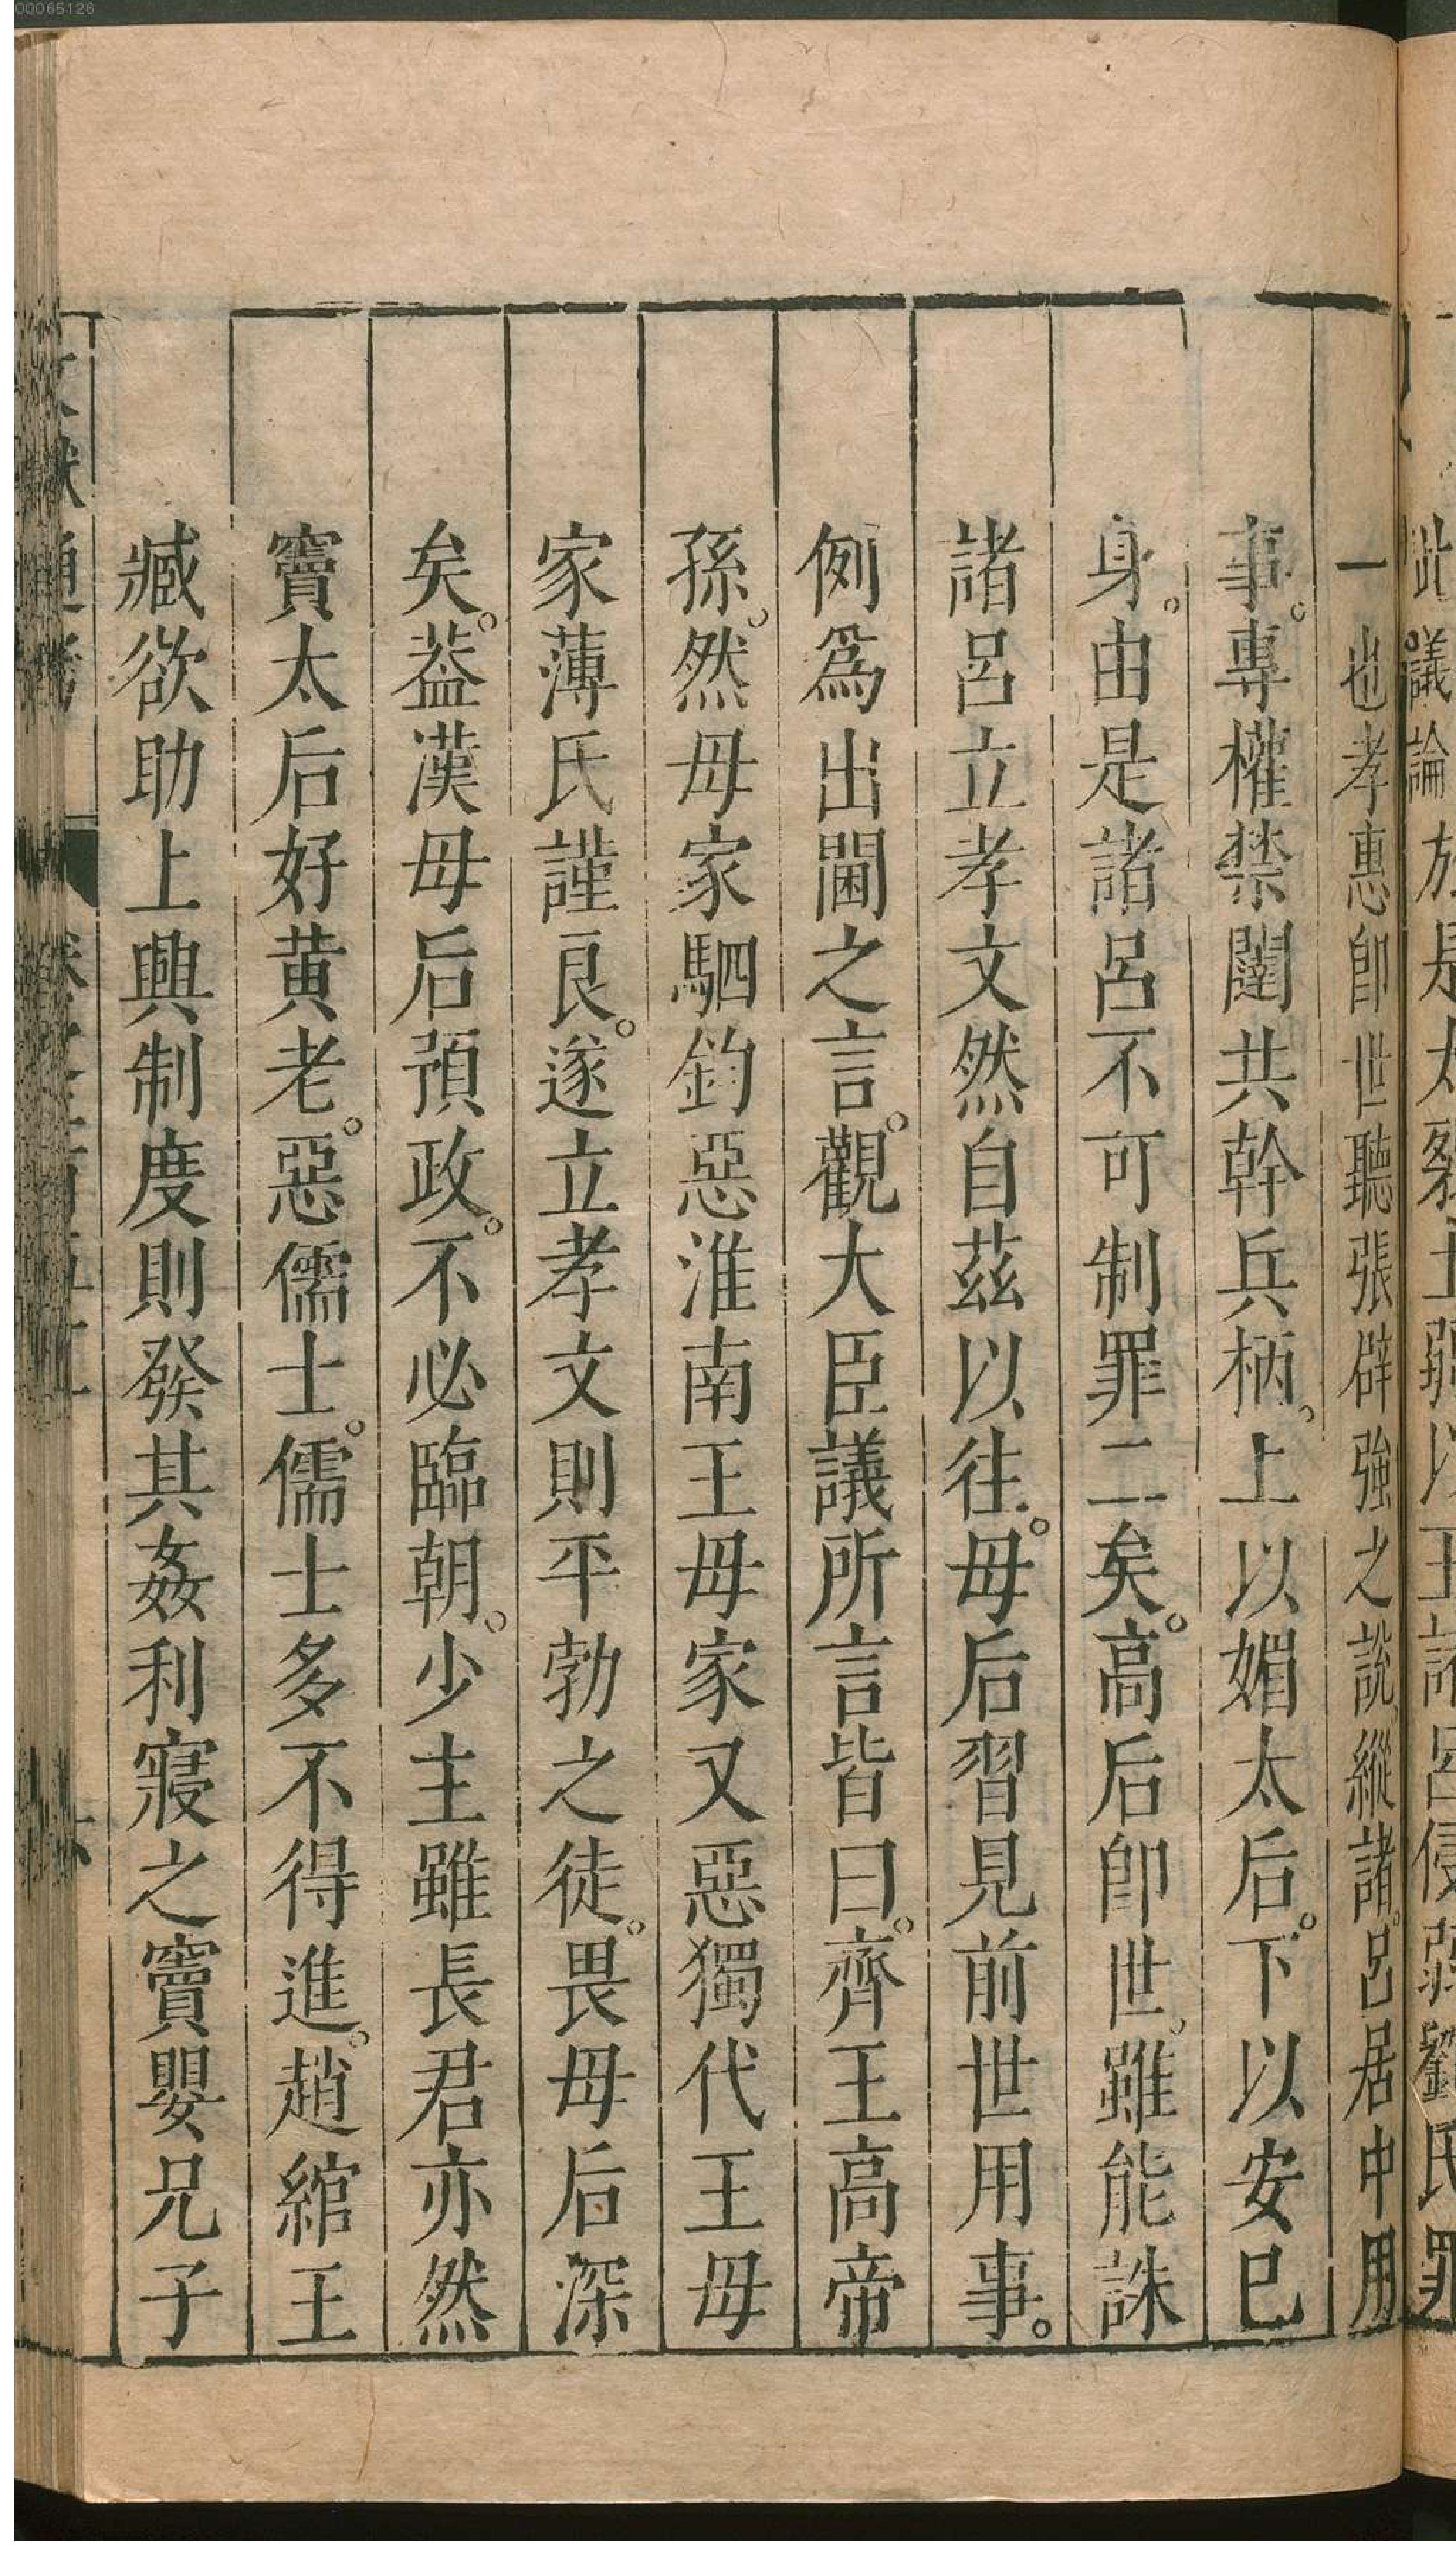 00065126
一也孝惠卽世聽張辟強之說縱諸。呂居中用
事。專權禁闥共幹兵柄。上以媚太后。下以安巳
身。由是諸呂不可制罪二矣。高后卽世。雖能誅
諸呂立孝文然自茲以往。母后習見前世用事。
例爲出閫之言。觀大臣議所言皆曰。齊王高帝
孫。然母家駟鈞惡淮南王母家又惡獨代王母
家薄氏謹良。遂立孝文則平勃之徒。畏母后深
矣。葢漢母后預政。不必臨朝。少主雖長君亦然
竇太后好黃老。惡儒士。儒士多不得進。趙綰王
臧欲助上興制度則發其姦利寢之竇嬰兄子
文獻通考